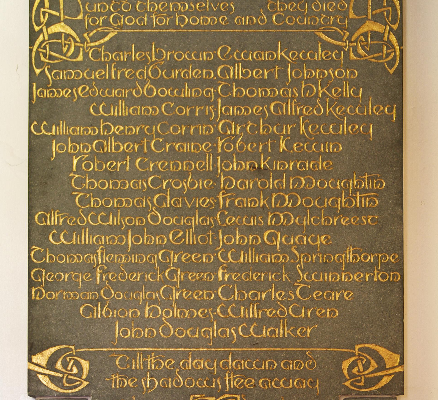 unto themselves they died
for God for home and Country
Charles Brown Ewan Kewley
Samuel Fred Burden Albert Johnson
James Edward Bowling Thomas H Kelly
William Corris James Alfred Kewley
William Henry Corrin Arthur Kewley
John Albert Craine Robert Kewin
Robert Crennell John Kinrade
Thomas Crosbie Harold Moughtin
Thomas Davies Frank Moughtin
Alfred Wilson Douglas Lewis Mylchreest
William John Elliot John Quaye
Thomas Fleming Green William Springthorpe
George Frederick Green Frederick Swinnerton
Norman Douglas Green Charles Teare
Albion Holmes Wilfred Wren
John Douglas Walker
Till the day dawn and
the shadows flee away